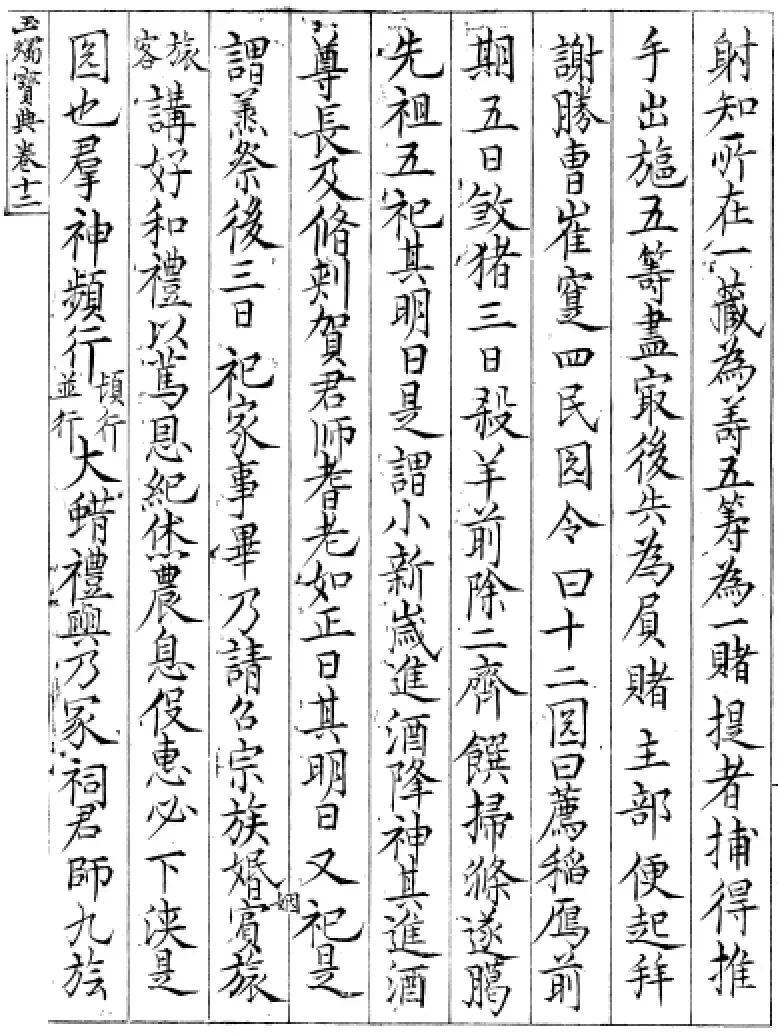 射知所在一藏為籌五籌為一賭提者捕得推
手出施五籌盡寂後共為屓賭主部便起拜
謝勝曹崔寔四民囝令曰十二囝日薦稻鴈前
期五日煞猪三日殺羊前除二齊饌掃滌遂臈
先祖五祀其明日是謂小新歲進酒降神其進酒
尊長及脩刾賀君师耆老如正日其明日又祀是
謂蒸祭後三日祀家事畢乃請召宗族婚姻賓旅
旅客講好和禮以篤恩紀休農息役惠必下浹是
囝也羣神頻行頃行並行大蜡禮興乃冢祠君師九族
玉燭寶典卷十二